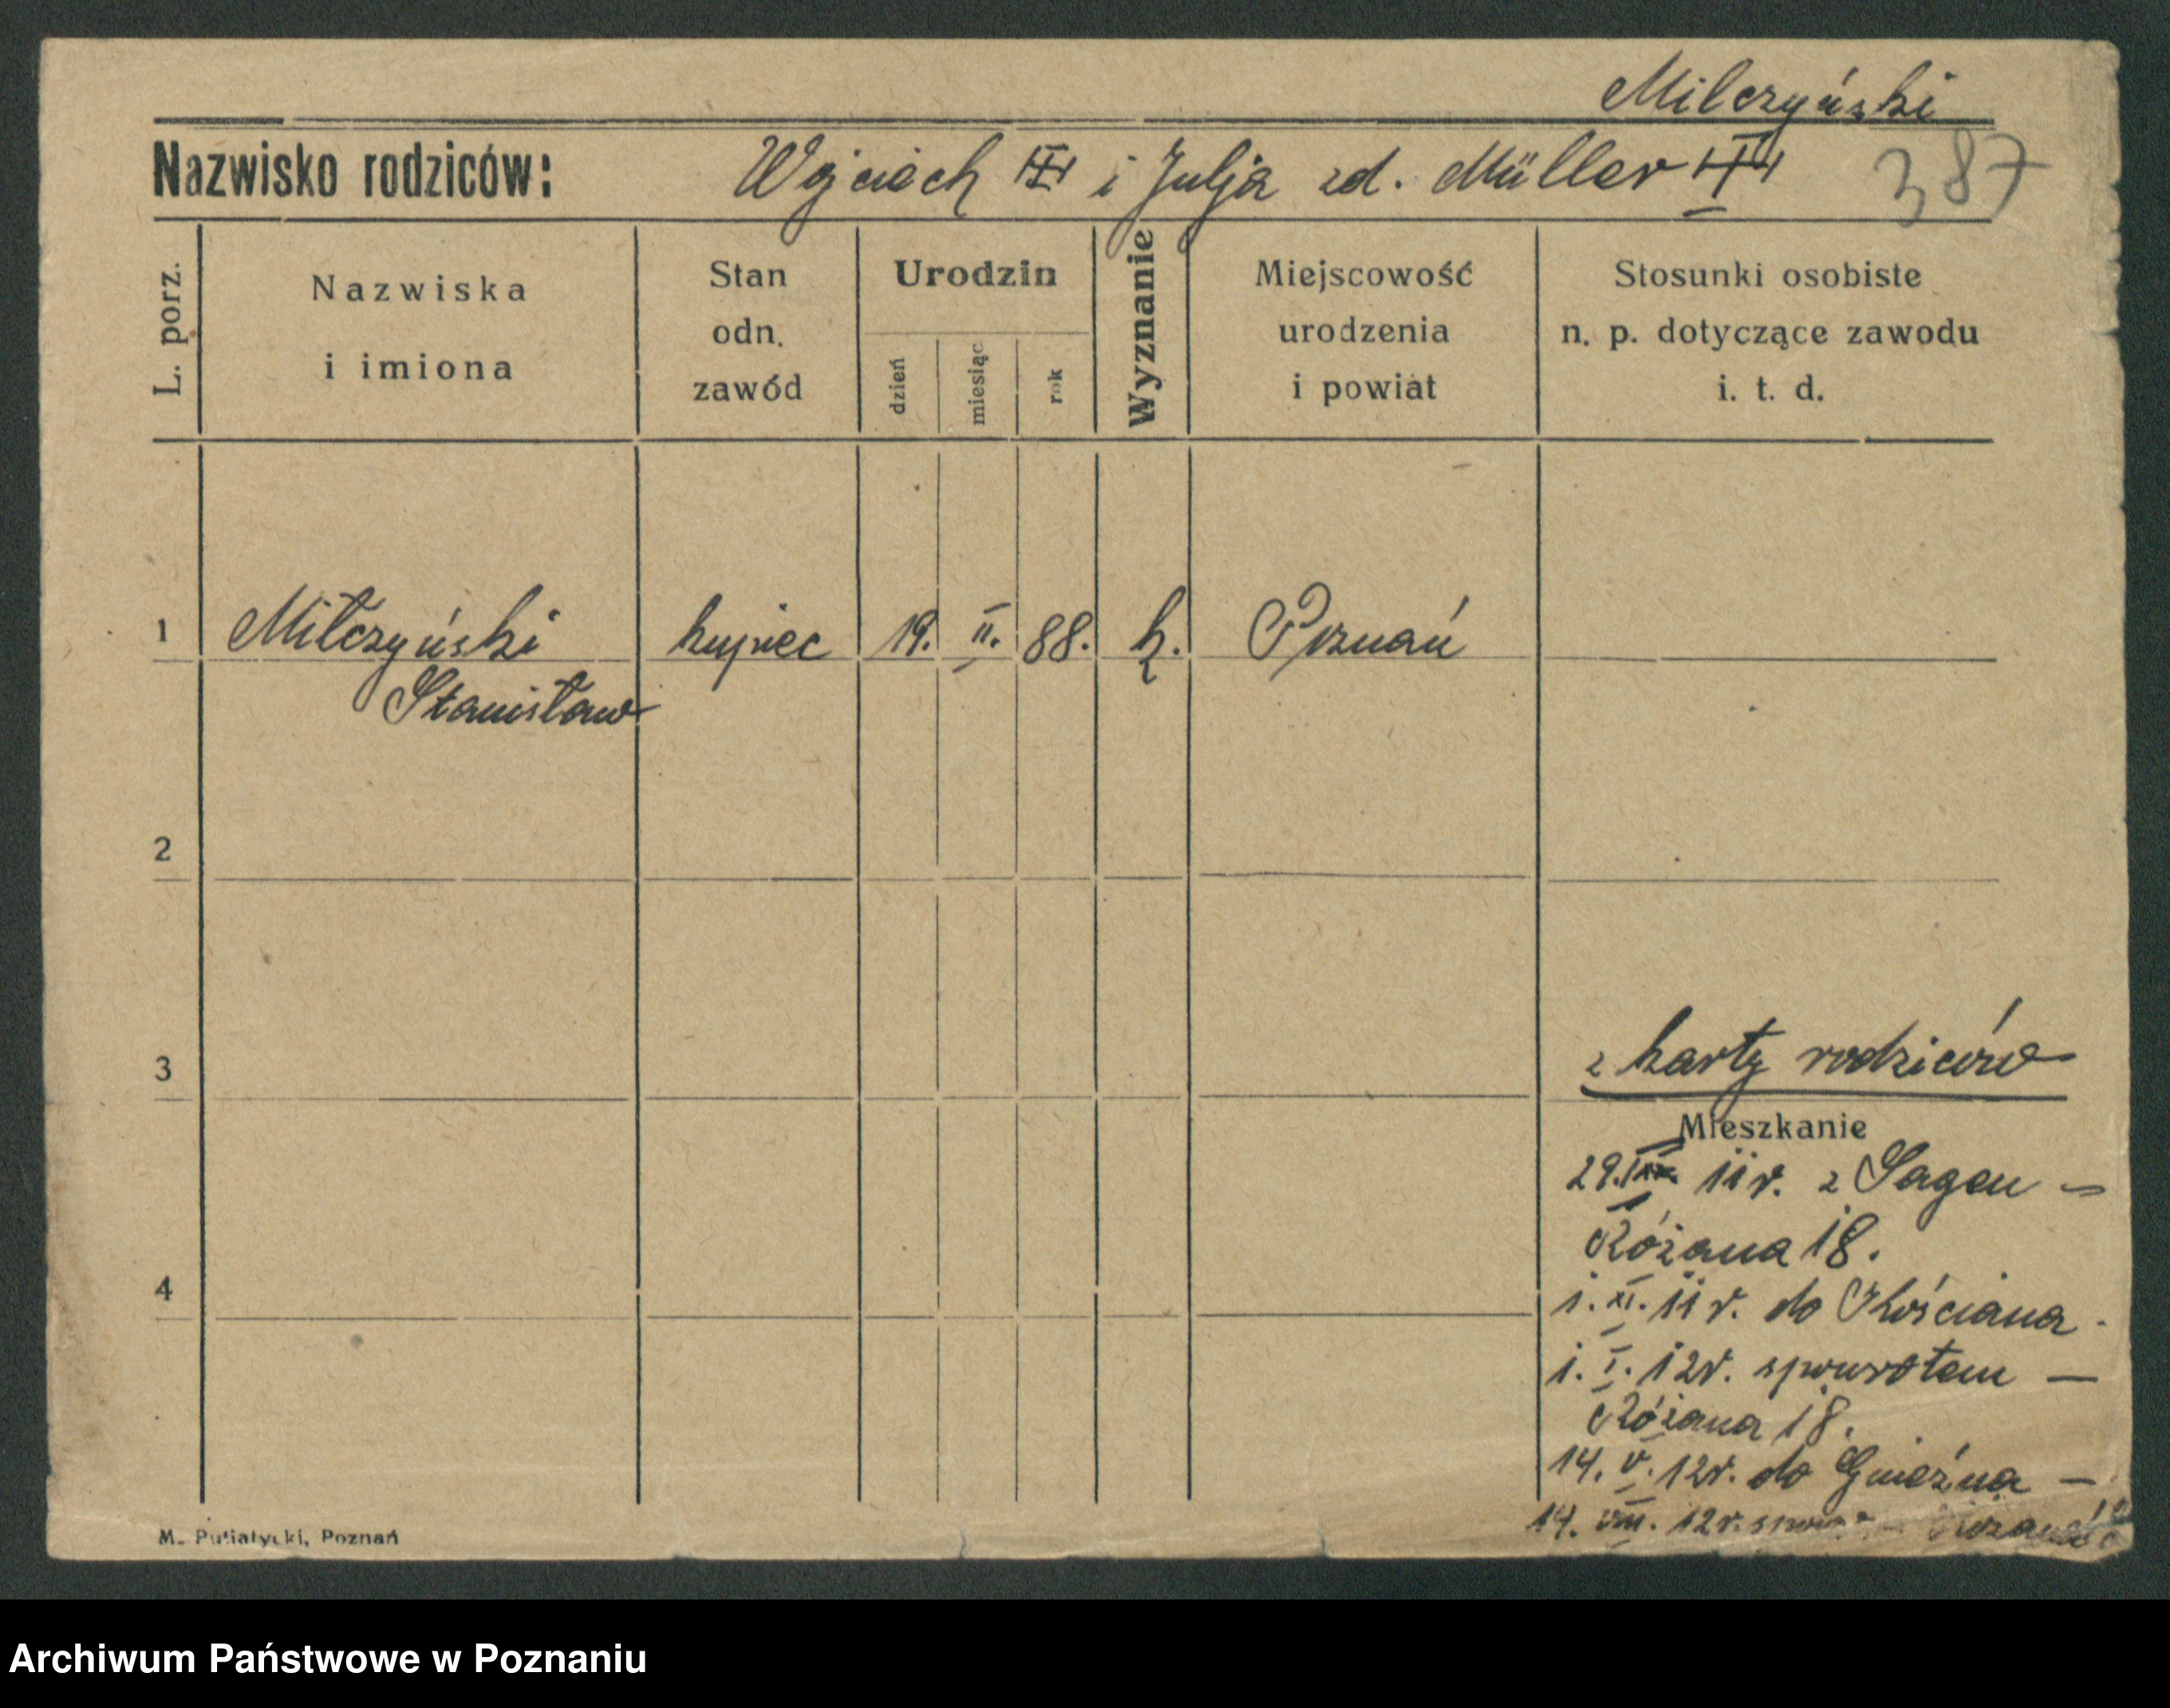 Milczyński
Nazwisko rodziców: Wojciech i Julja zd. Müller 387
L. porz.
Nazwiska
i imiona
Stan
odn.
zawód
Urodzin
dzień
miesiąc
rok
Wyznanie
Miejscowość
urodzenia
i powiat
Stosunki osobiste
n. p. dotyczące zawodu
i. t. d.
1 Milczyński kupiec 19. II. 88. k. Poznań
Stanisław
2
3
z karty rodziców
Mieszkanie
29. 11 r. z Sagan –
Różana 18.
4
1. XI. 11 r. do Kościana -
1. I. 12 r. spowrotem –
Różana 18.
14. V. 12 r. do Gniezna –
14. VIII. 12 r.
M. Putiatycki, Poznań
Archiwum Państwowe w Poznaniu